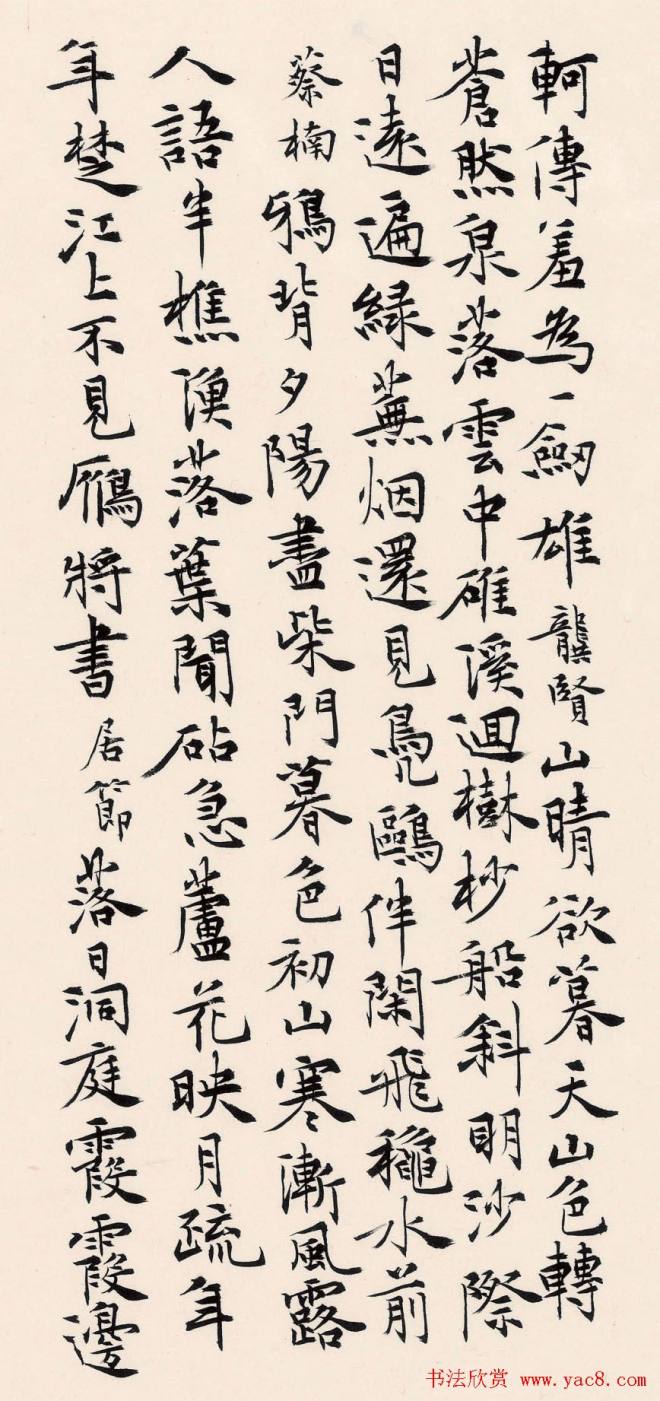 軻傳羞為一劔雄龔賢山晴欲暮天山色轉
蒼然泉落雲中碓溪迴樹杪船斜明沙際
日遠遍緑蕪烟還見鳧鷗伴閑飛龝水前
蔡楠鴉背夕陽盡柴門暮色初山寒漸風露
人語半樵漁落葉聞砧急蘆花映月疏年
年楚江上不見鴈將書居節落日洞庭霞霞邊
书法欣赏 www.yac8.com